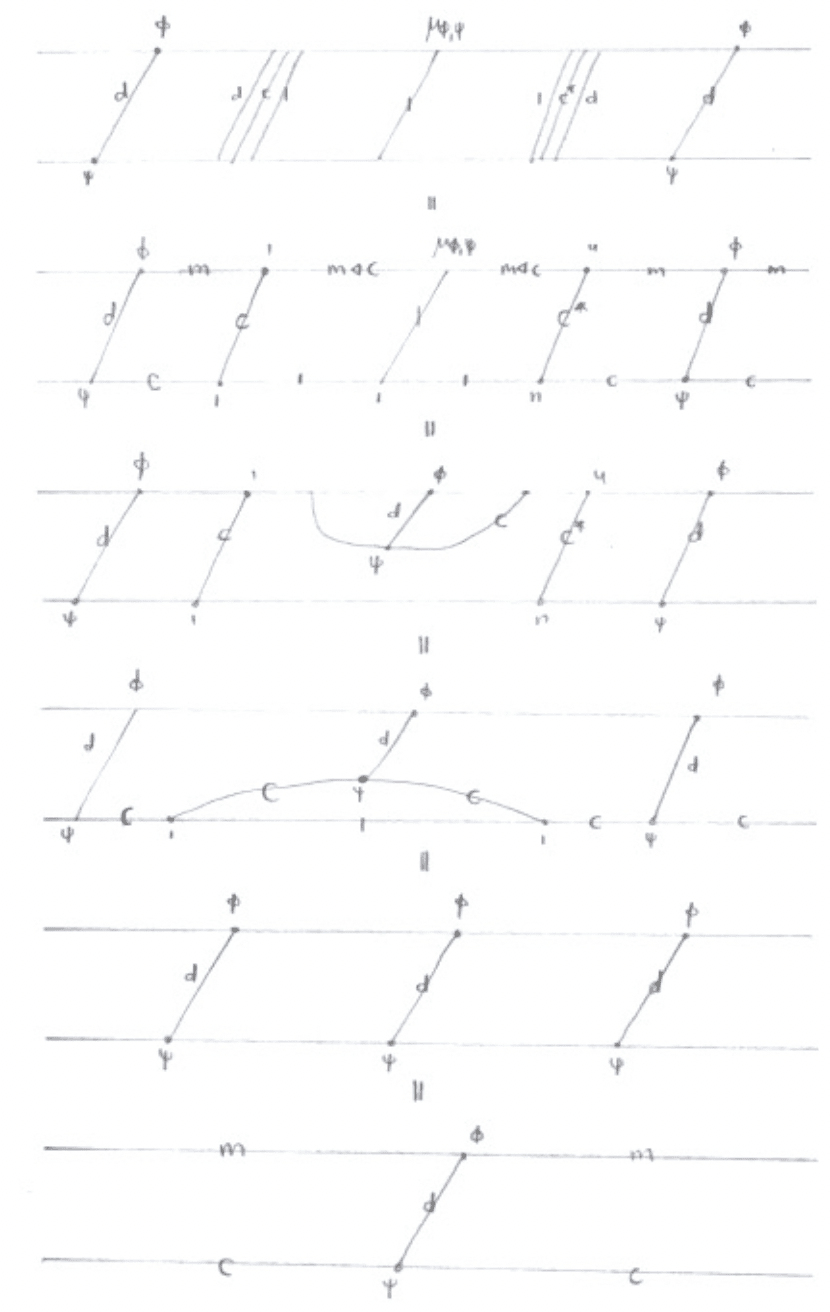 ϕ μϕ,ψ ϕ
d d c 1 1 1 c* d d
ψ ψ
=
ϕ 1 μϕ,ψ u ϕ
m m⊲c m⊲c m m
d c 1 c* d
c 1 1 c c
ψ 1 1 n ψ
=
ϕ 1 ϕ u ϕ
d c d c c* d
ψ
ψ 1 n ψ
=
ϕ ϕ ϕ
d d d
c ψ c
c 1 c c
ψ 1 1 ψ
=
ϕ ϕ ϕ
d d d
ψ ψ ψ
=
ϕ
m m
d
c c
ψ